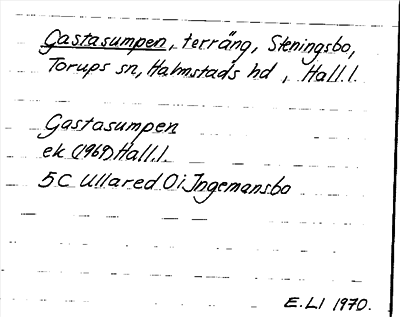 Gastasumpen, terräng, Steningsbo,
Torups sn, Halmstads hd, Hall.l.
Gastasumpen
ek (1969) Hall.l.
5C Ullared 0i Ingemansbo
E.LI 1970.